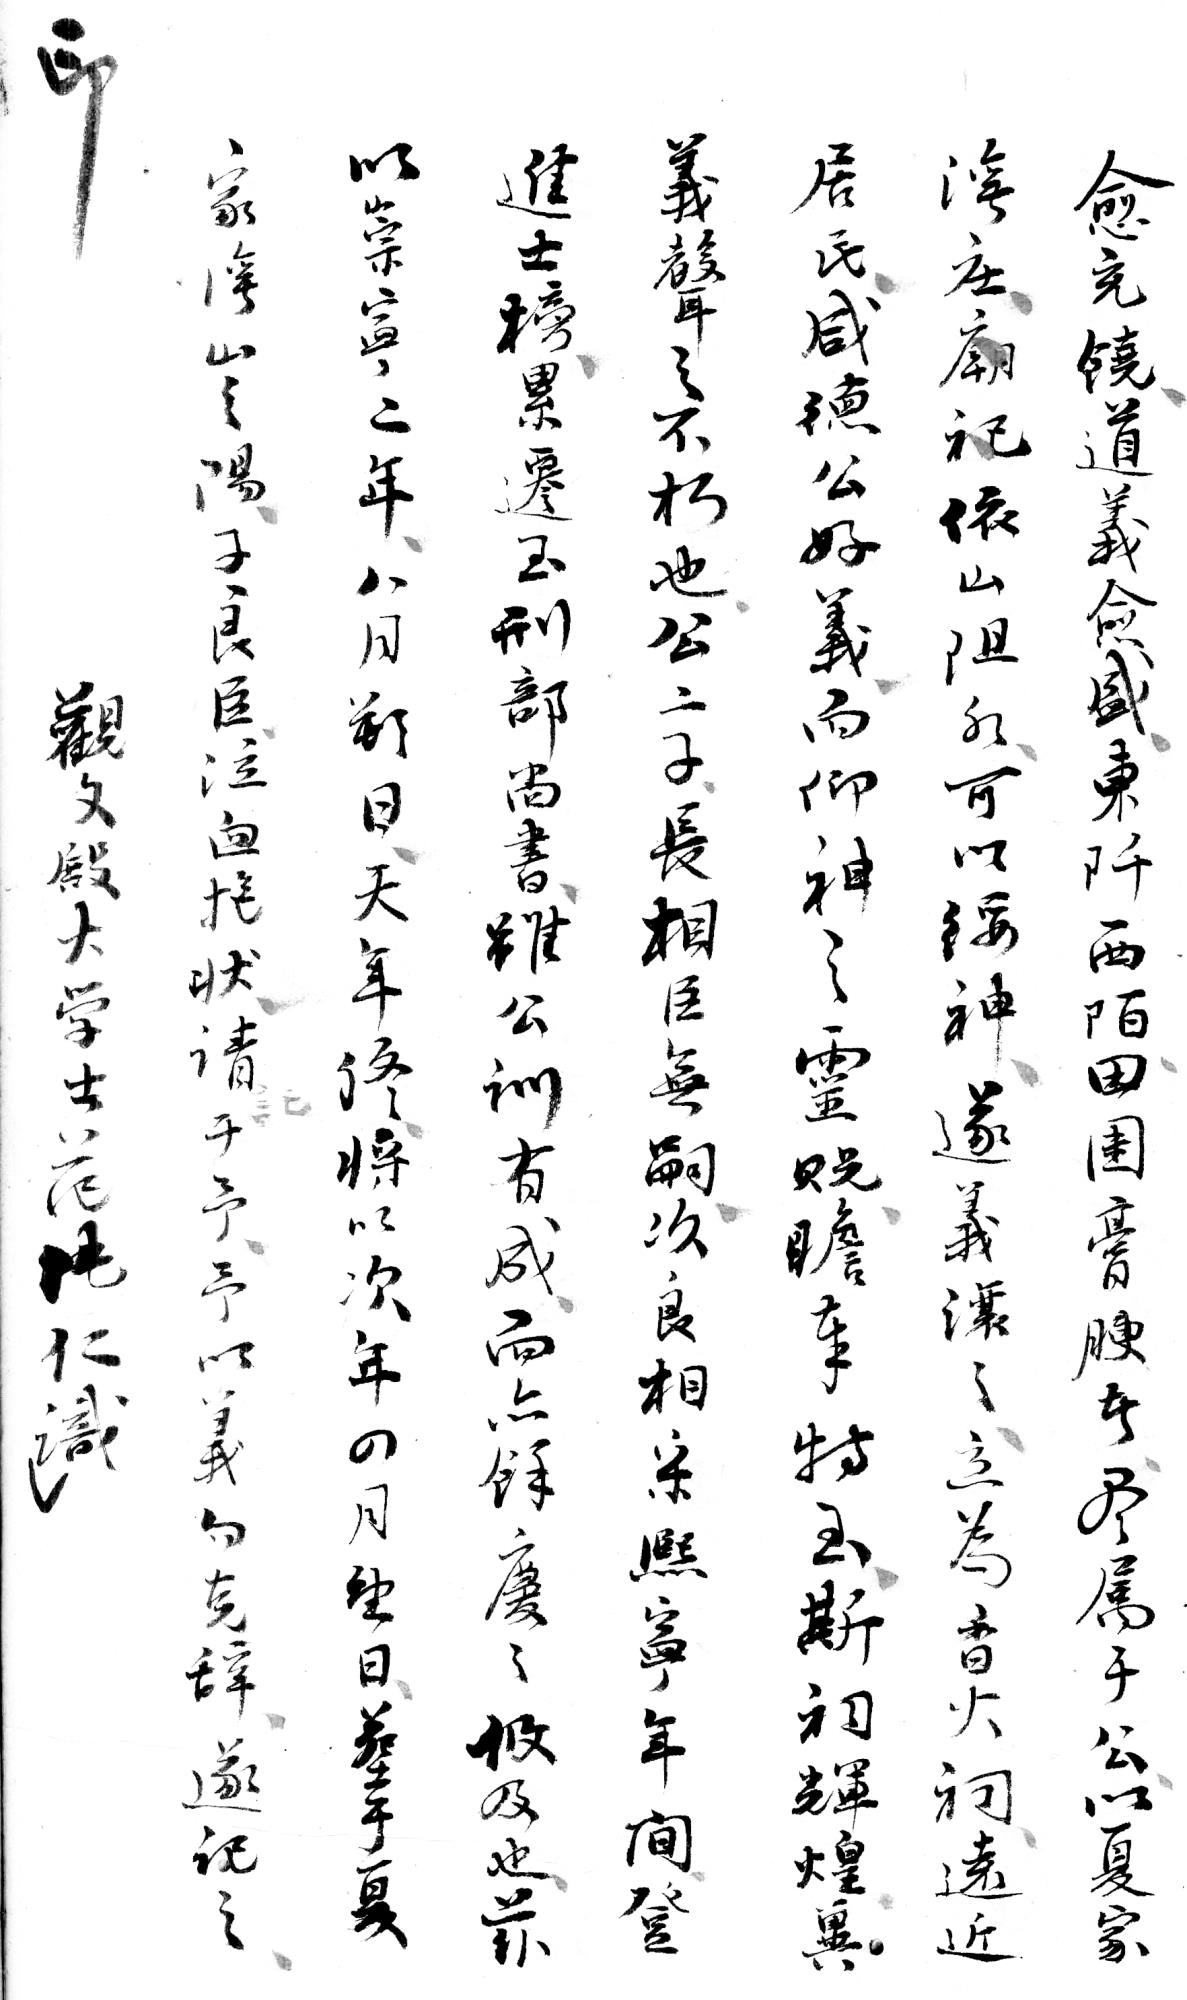 愈充饒道義愈盛東阡西陌田園膏腴者尽属于公以夏家
湾庄廟祀依山阻水可以綏神遂義讓之立為香火祠遠近
居民咸德公好義而仰神之靈貺瞻奉特至斯祠輝煌興
義聲之不朽也公二子長相臣無嗣次良相宋熙寧年間登
進士榜累遷至刑部尚書雖公訓有成而亦餘慶之攸及也茲
以崇寧二年八月朔日天年終將以次年四月望日葬于夏
家湾山之陽子良臣泣血抱状请于予予以義勿克辞遂記之
觀文殿大学士范純仁識
印